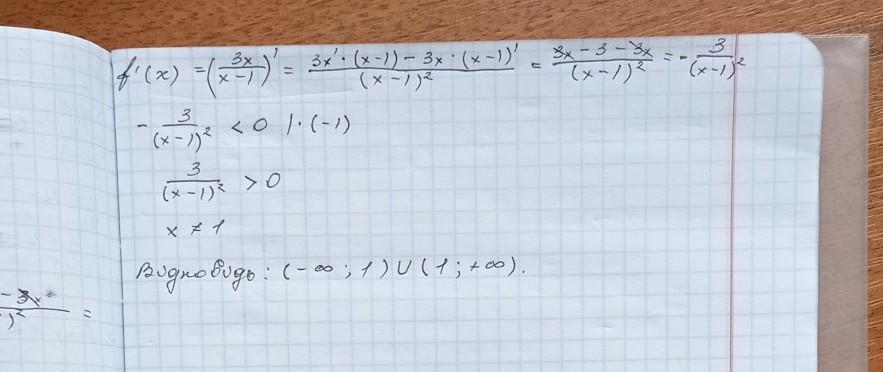 f'(x) = (3x/(x-1))' = (3x'·(x-1) - 3x·(x-1)')/(x-1)² = (3x - 3 - 3x)/(x-1)² = -3/(x-1)²
-3/(x-1)² < 0 |·(-1)
3/(x-1)² > 0
x ≠ 1
Відповідь: (-∞; 1) ∪ (1; +∞).
- 3x
)² =